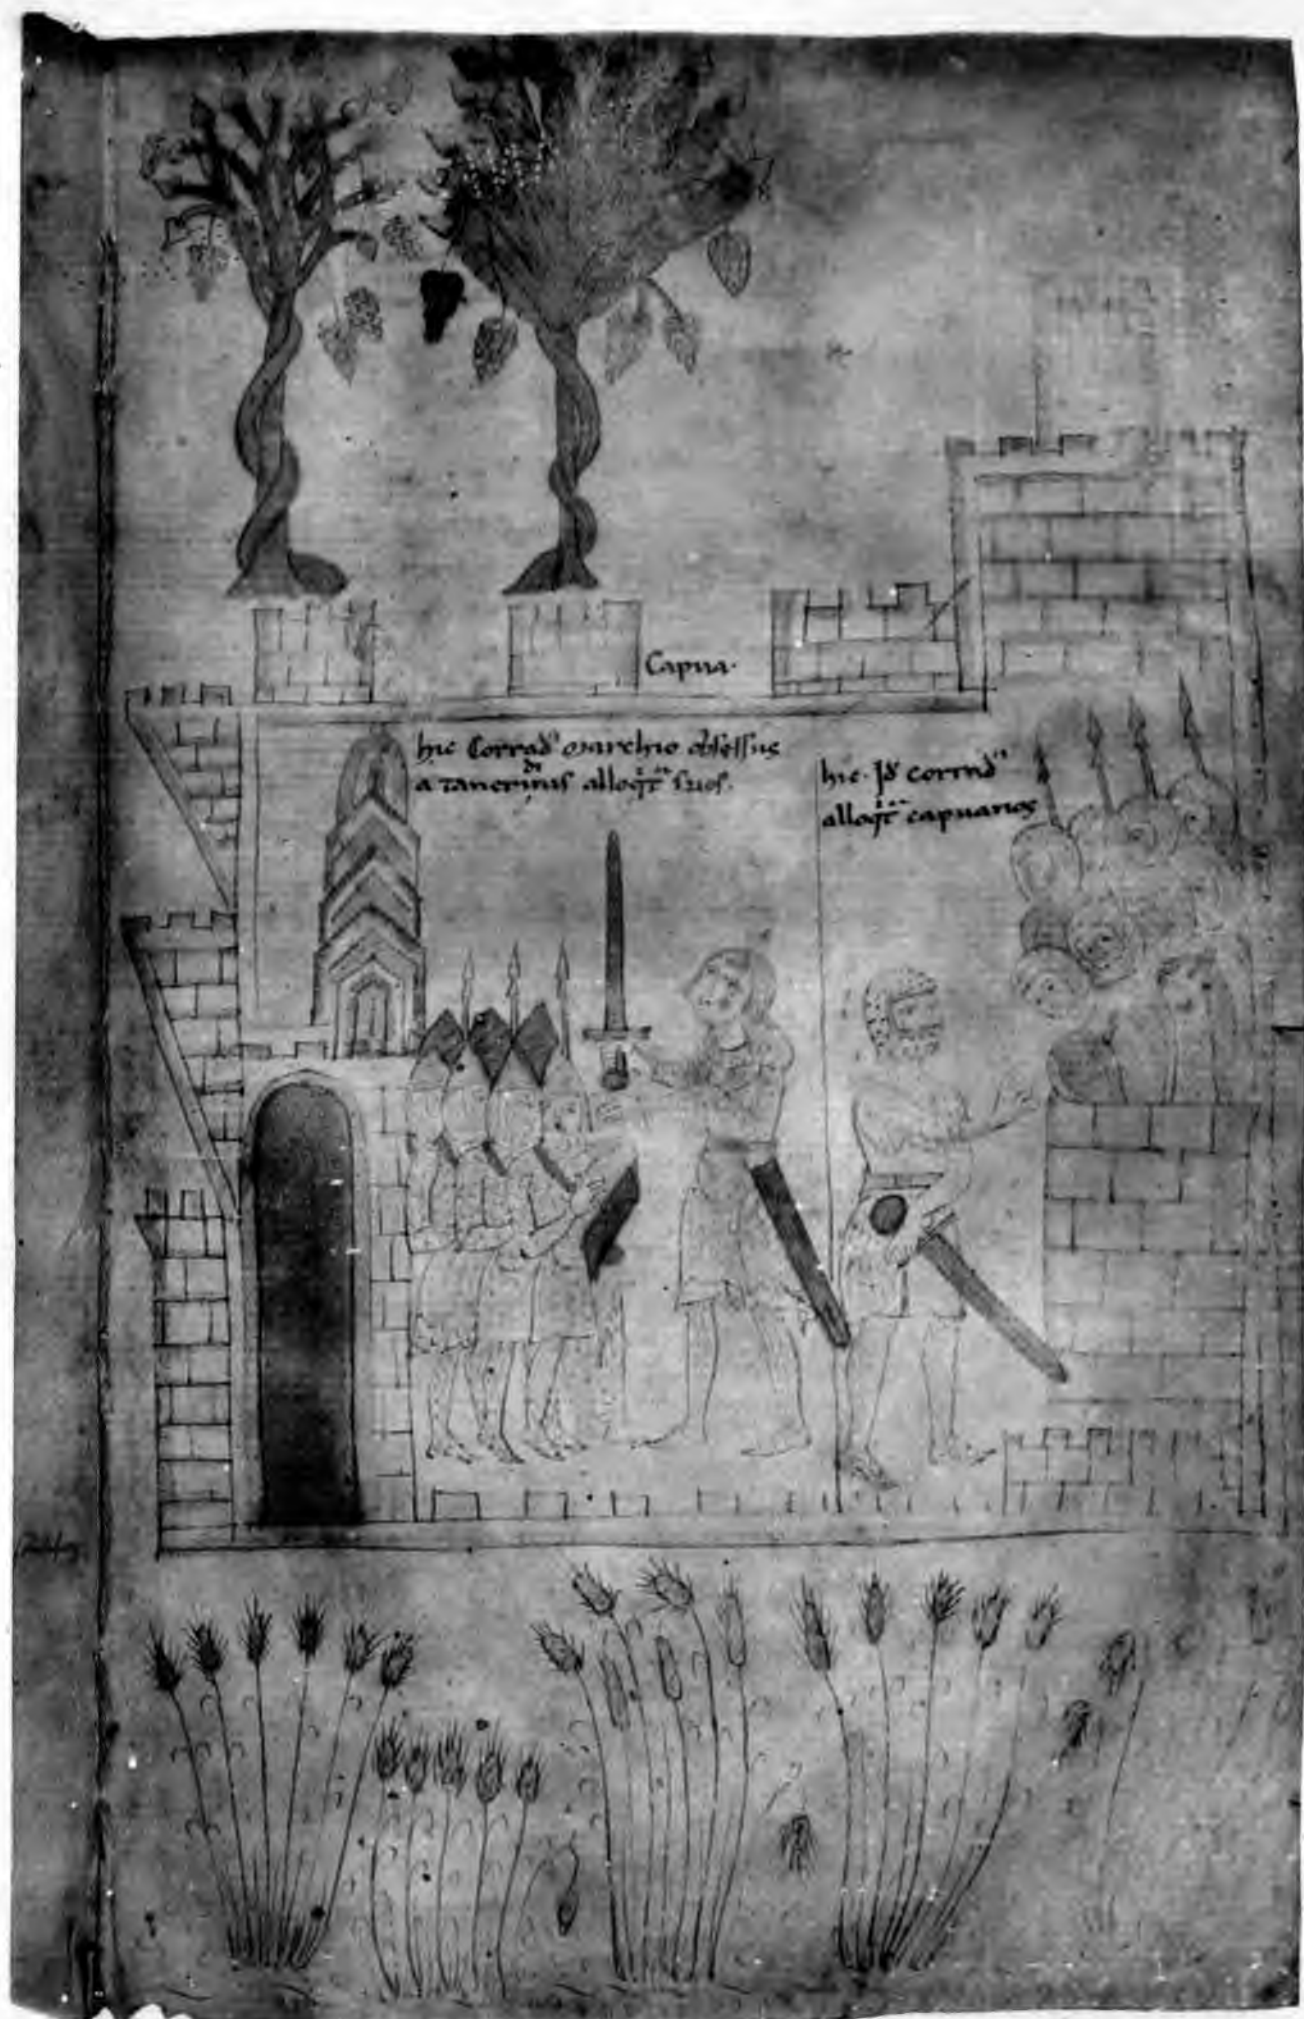 Capua.
hic Corrad' marchio obsessus
a Tancridinis alloqit' suos.
hic. Id' corrad'
alloqit' capuanos